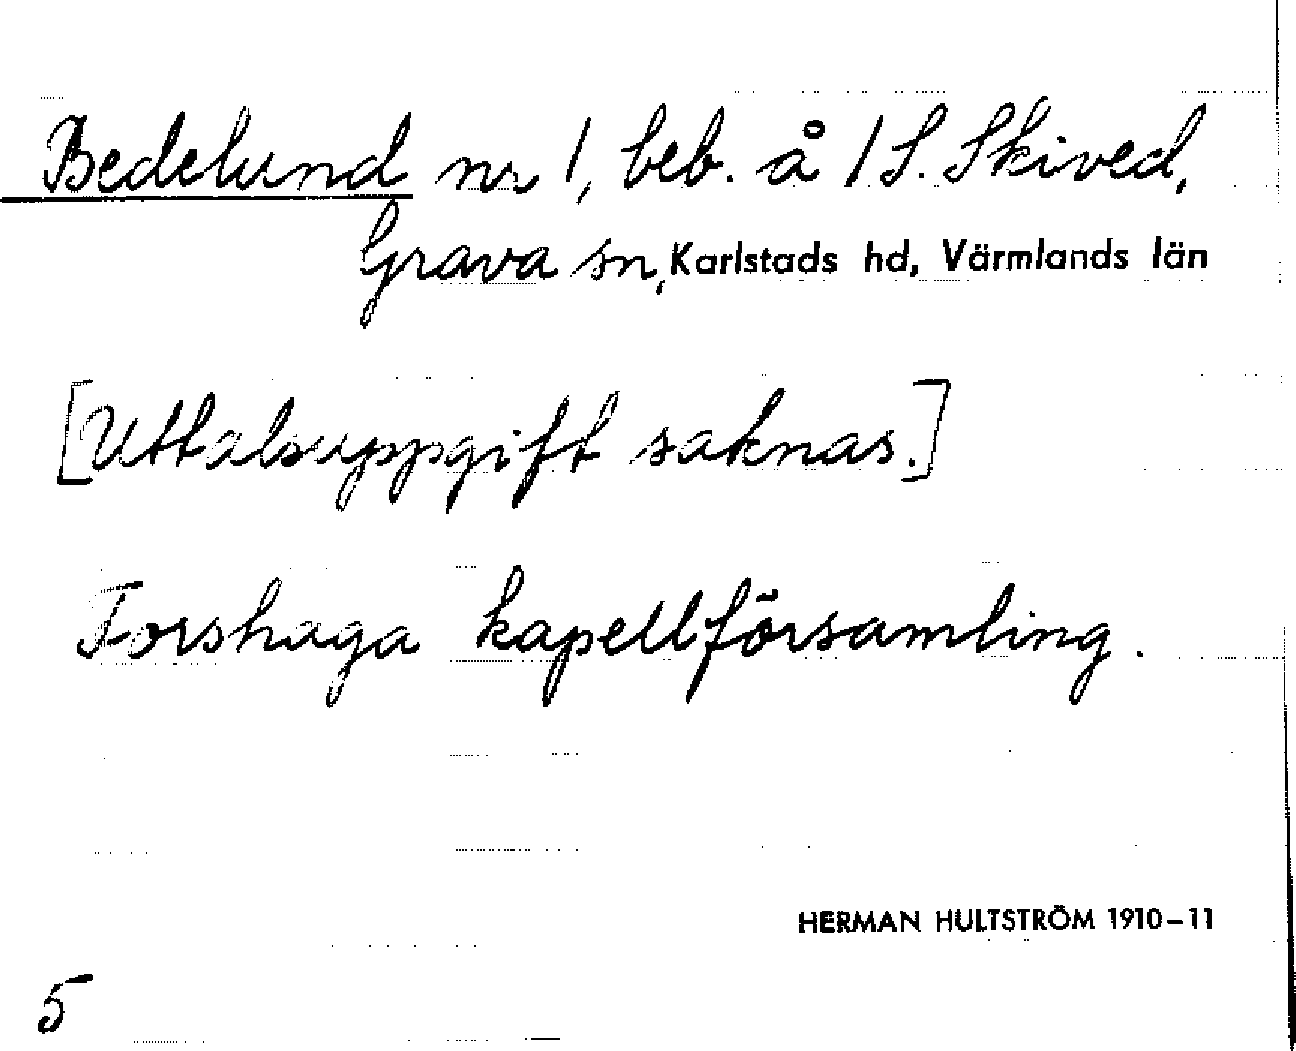 Bedelund nr 1, beb. å 1 S. Skived,
Grava sn, Karlstads hd, Värmlands län
[Uttalsuppgift saknas.]
Forshaga kapellförsamling.
HERMAN HULTSTRÖM 1910–11
5